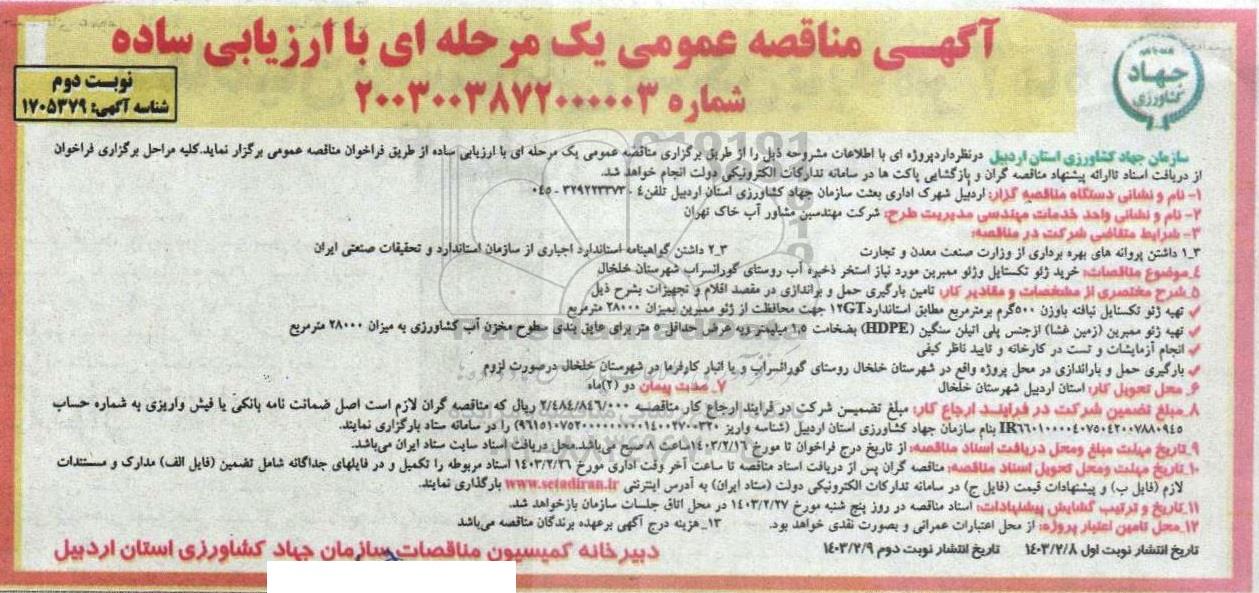 آگهی مناقصه عمومی یک مرحله ای با ارزیابی ساده
شماره ۲۰۰۳۰۰۳۸۷۲۰۰۰۰۰۳
نوبت دوم
شناسه آگهی: ۱۷۰۵۳۷۹
جهاد
کشاورزی
سازمان جهاد کشاورزی استان اردبیل درنظرداردپروژه ای با اطلاعات مشروحه ذیل را از طریق برگزاری مناقصه عمومی یک مرحله ای با ارزیابی ساده از طریق فراخوان مناقصه عمومی برگزار نماید.کلیه مراحل برگزاری فراخوان
از دریافت اسناد تاارائه پیشنهاد مناقصه گران و بازگشایی پاکت ها در سامانه تدارکات الکترونیکی دولت انجام خواهد شد.
۱- نام و نشانی دستگاه مناقصه گزار: اردبیل شهرک اداری بعثت سازمان جهاد کشاورزی استان اردبیل تلفن
۲- نام و نشانی واحد خدمات مهندسی مدیریت طرح: شرکت مهندسین مشاور آب خاک تهران
۳- شرایط متقاضی شرکت در مناقصه:
۳_۱ داشتن پروانه های بهره برداری از وزارت صنعت معدن و تجارت ۳_۲ داشتن گواهینامه استاندارد اجباری از سازمان استاندارد و تحقیقات صنعتی ایران
۴_موضوع مناقصات: خرید ژئو تکستایل وژئو ممبرین مورد نیاز استخر ذخیره آب روستای گورانسراب شهرستان خلخال
۵_شرح مختصری از مشخصات و مقادیر کار: تامین بارگیری حمل و براندازی در مقصد اقلام و تجهیزات بشرح ذیل
✓ تهیه ژئو تکستایل نبافته باوزن ۵۰۰گرم برمترمربع مطابق استاندارد۱۲GT جهت محافظت از ژئو ممبرین بمیزان ۲۸۰۰۰ مترمربع
✓ تهیه ژئو ممبرین (زمین غشا) ازجنس پلی اتیلن سنگین (HDPE) بضخامت ۱,۵ میلیمتر وبه عرض حداقل ۵ متر برای عایق بندی سطوح مخزن آب کشاورزی به میزان ۲۸۰۰۰ مترمربع
✓ انجام آزمایشات و تست در کارخانه و تایید ناظر کیفی
✓ بارگیری حمل و باراندازی در محل پروژه واقع در شهرستان خلخال روستای گورانسراب و یا انبار کارفرما در شهرستان خلخال درصورت لزوم
۶_ محل تحویل کار: استان اردبیل شهرستان خلخال ۷_ مدت پیمان دو (۲)ماه
۸_مبلغ تضمین شرکت در فرایند ارجاع کار: مبلغ تضمین شرکت در فرایند ارجاع کار مناقصه ۲/۴۸۴/۸۴۶/۰۰۰ ریال که مناقصه گران لازم است اصل ضمانت نامه بانکی یا فیش واریزی به شماره حساب
IR۶۶۰۱۰۰۰۰۴۰۷۵۰۴۲۰۰۷۸۸۰۹۴۵ بنام سازمان جهاد کشاورزی استان اردبیل (شناسه واریز) را در سامانه ستاد بارگزاری نمایند.
۹_تاریخ مهلت مبلغ ومحل دریافت اسناد مناقصه: از تاریخ درج فراخوان تا مورخ ۱۴۰۳/۲/۱۶ساعت صبح می باشد.محل دریافت اسناد سایت ستاد ایران می‌باشد.
۱۰_تاریخ مهلت ومحل تحویل اسناد مناقصه: مناقصه گران پس از دریافت اسناد مناقصه تا ساعت آخر وقت اداری مورخ ۱۴۰۳/۲/۲۶ اسناد مربوطه را تکمیل و در فایلهای جداگانه شامل تضمین (فایل الف) مدارک و مستندات
لازم (فایل ب) و پیشنهادات قیمت (فایل ج) در سامانه تدارکات الکترونیکی دولت (ستاد ایران) به آدرس اینترنتی www.setadiran.ir بارگذاری نمایند.
۱۱_تاریخ و ترتیب گشایش پیشنهادات: اسناد مناقصه در روز پنج شنبه مورخ ۱۴۰۳/۲/۲۷ در محل اتاق جلسات سازمان بازخواهد شد.
۱۲_محل تامین اعتبار پروژه: از محل اعتبارات عمرانی و بصورت نقدی خواهد بود. ۱۳_هزینه درج آگهی برعهده برندگان مناقصه می‌باشد
تاریخ انتشار نوبت اول ۱۴۰۳/۲/۸ تاریخ انتشار نوبت دوم ۱۴۰۳/۲/۹
دبیرخانه کمیسیون مناقصات سازمان جهاد کشاورزی استان اردبیل
ParsNamadData